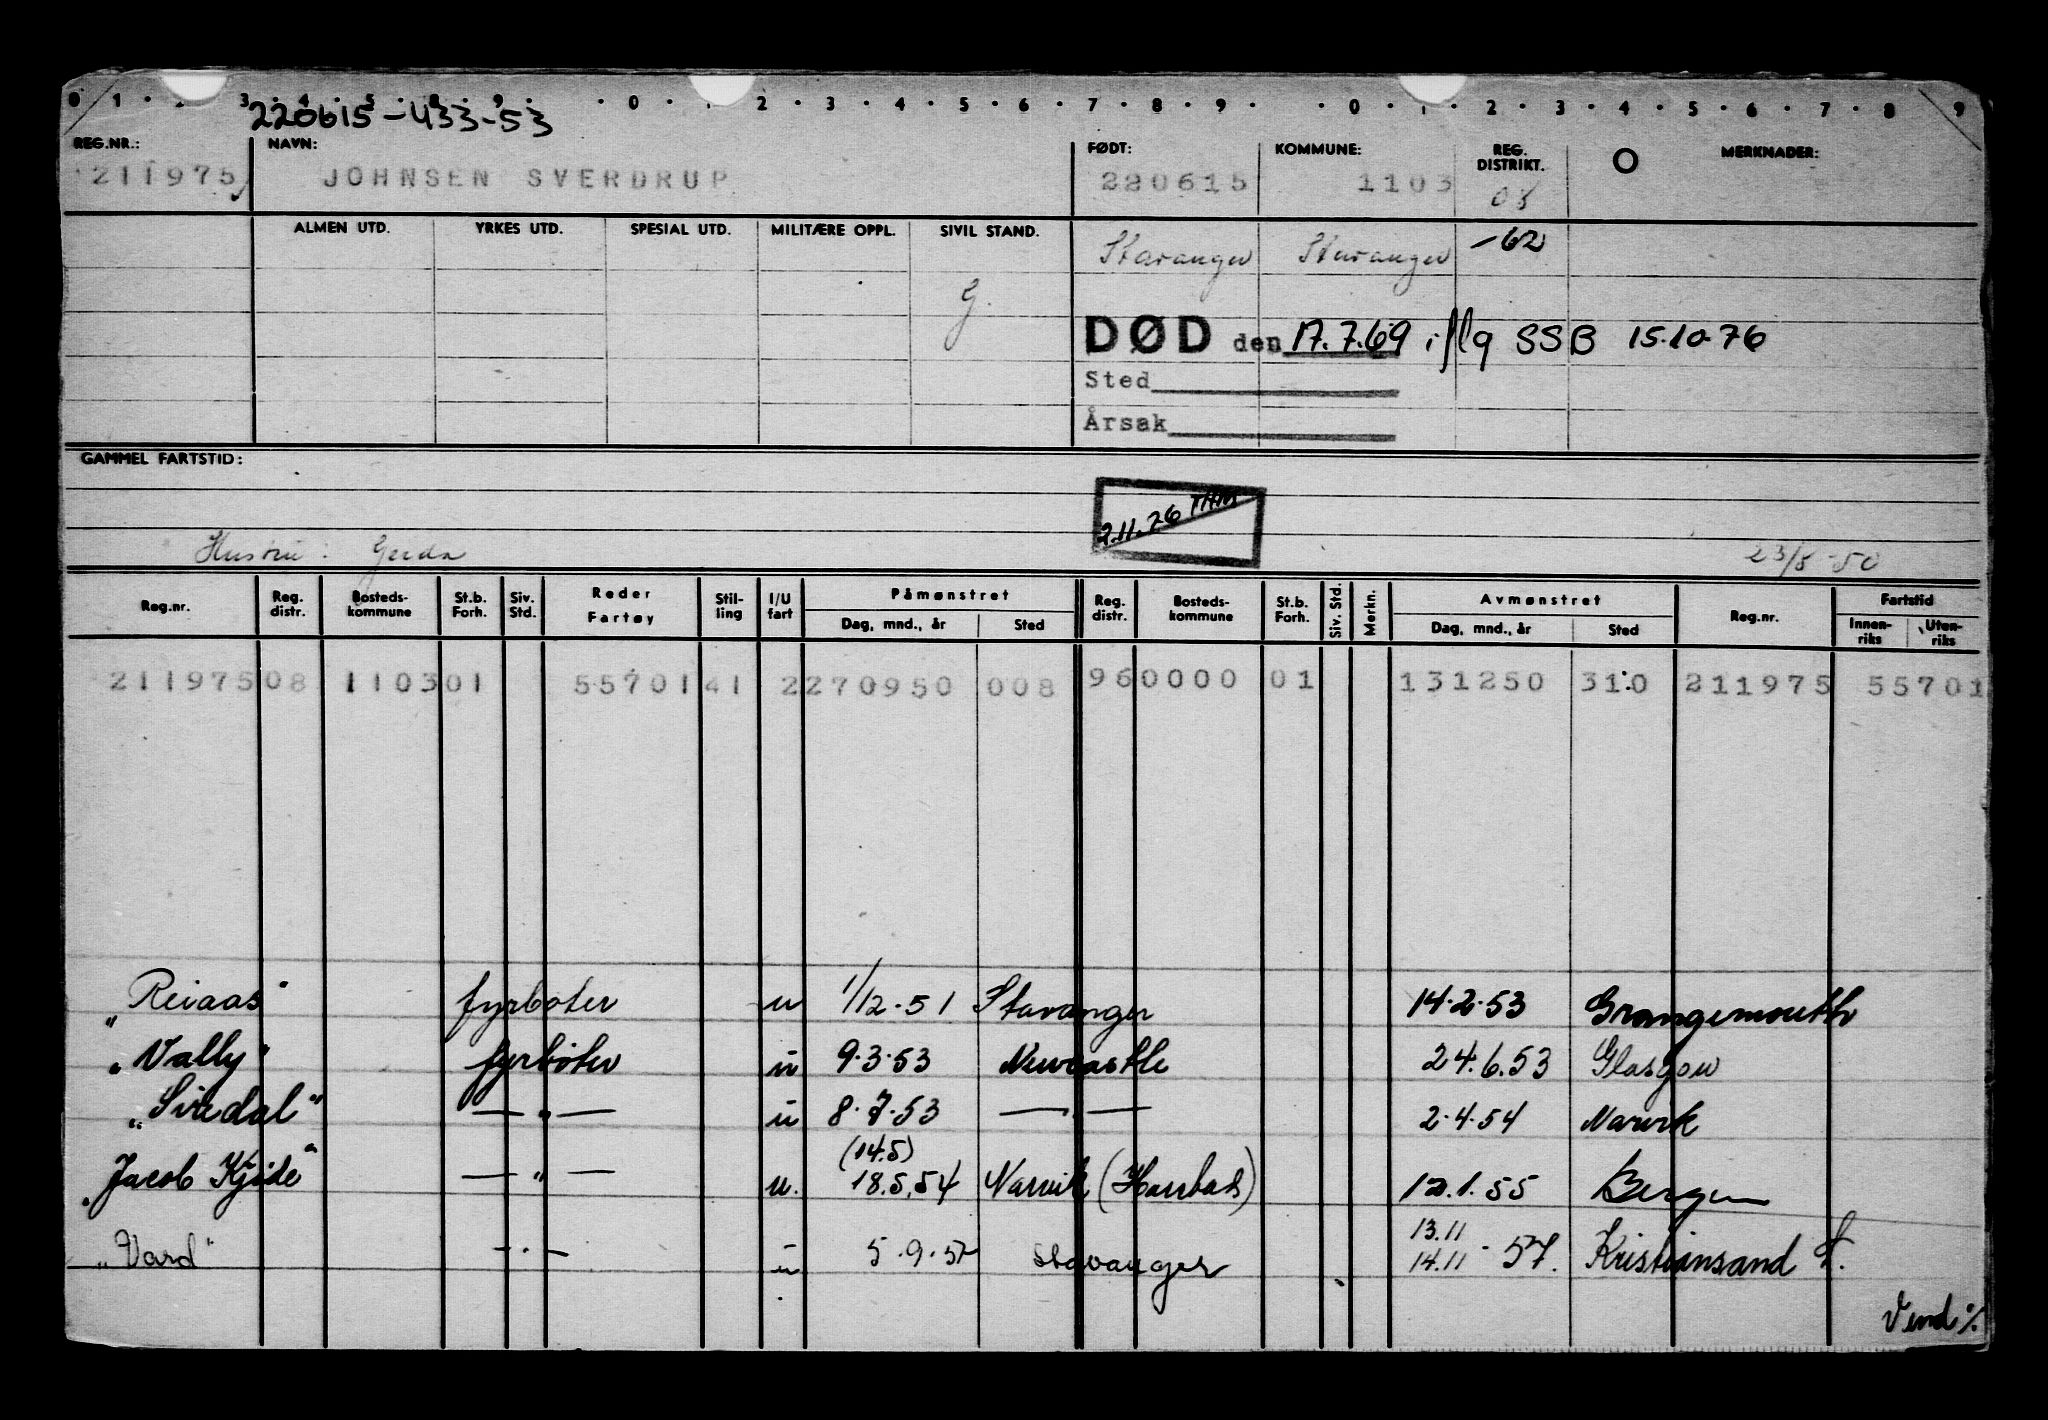 0 1 . . 3 . 4 . 5 . 8 . 9 . . 0 . . 2 . 3 . 4 . 5 . 6 . 7 . 8 . 9 . . 0 . 1 . 2 . 3 . 4 . 5 . 6 . 7 . 8 . 9
220615-433-53
REG.NR.: NAVN: FØDT: KOMMUNE: REG. DISTRIKT. O MERKNADER:
211975 JOHNSEN SVERDRUP 220615 1103 08
ALMEN UTD. YRKES UTD. SPESIAL UTD. MILITÆRE OPPL. SIVIL STAND.
Stavanger Stavanger -62
G.
DØD den 17.7.69 iflg SSB 15.10.76
Sted
Årsak
GAMMEL FARTSTID:
2.11.76 THM
Hustru: Gerda 23/8-50
Reg.nr. Reg. distr. Bosteds-kommune St.b. Forh. Siv. Std. Reder Fartøy Stil-ling I/U fart Påmønstret Dag, mnd., år Sted Reg. distr. Bosteds-kommune St.b. Forh. Siv. Std. Merkn. Avmønstret Dag, mnd., år Sted Reg.nr. Fartstid Innen-riks Uten-riks
211975 08 1103 01 55701 41 2 270950 008 96 0000 01 131250 310 211975 55701
"Reiaas" fyrbøter u 1/12.51 Stavanger 14.2.53 Grangemouth
"Vally" fyrbøter u 9.3.53 Newcastle 24.6.53 Glasgow
"Siredal" — " — u 8.7.53 — " — 2.4.54 Narvik
(14.5)
"Jacob Kjøde" — " — u. 18.5.54 Narvik (Harstad) 12.1.55 Bergen
13.11
"Vard" — " — u 5.9.57 Stavanger 14.11.57. Kristiansand S.
Vend %